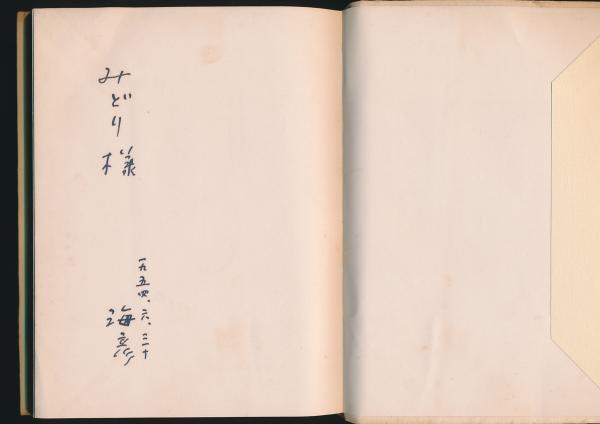 みどり様
一九五四、六、三十
海彦